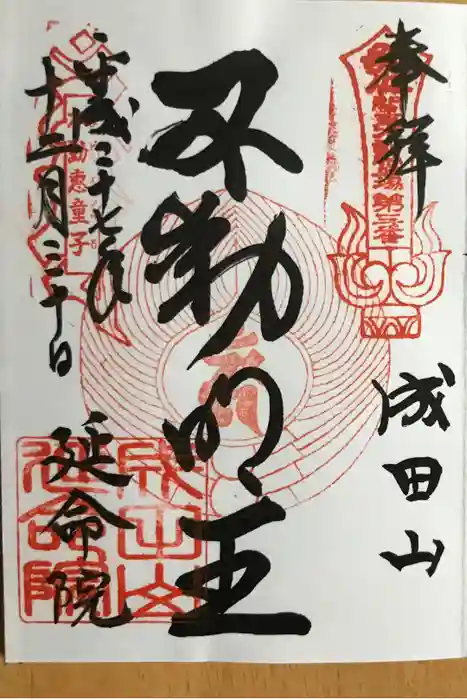 奉拝
成田山
不動明王
平成二十七年
十二月三十日
延命院
恵童子
成田山
延命院